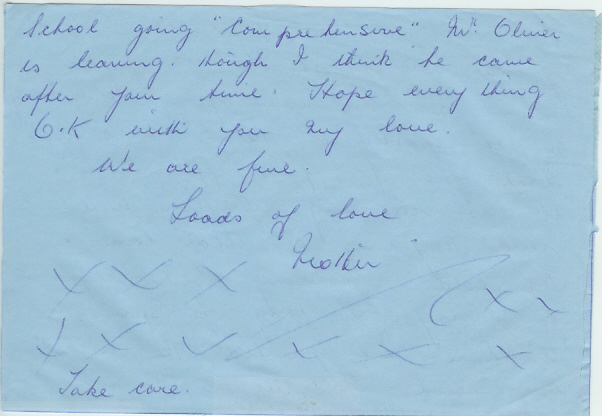 School going "Comprehensive" Mr. Oliver
is leaving. though I think he came
after your time. Hope every thing
O.K with you my love.
We are fine.
Loads of love
Mother
X X X X X
X X X X X X
Take care.